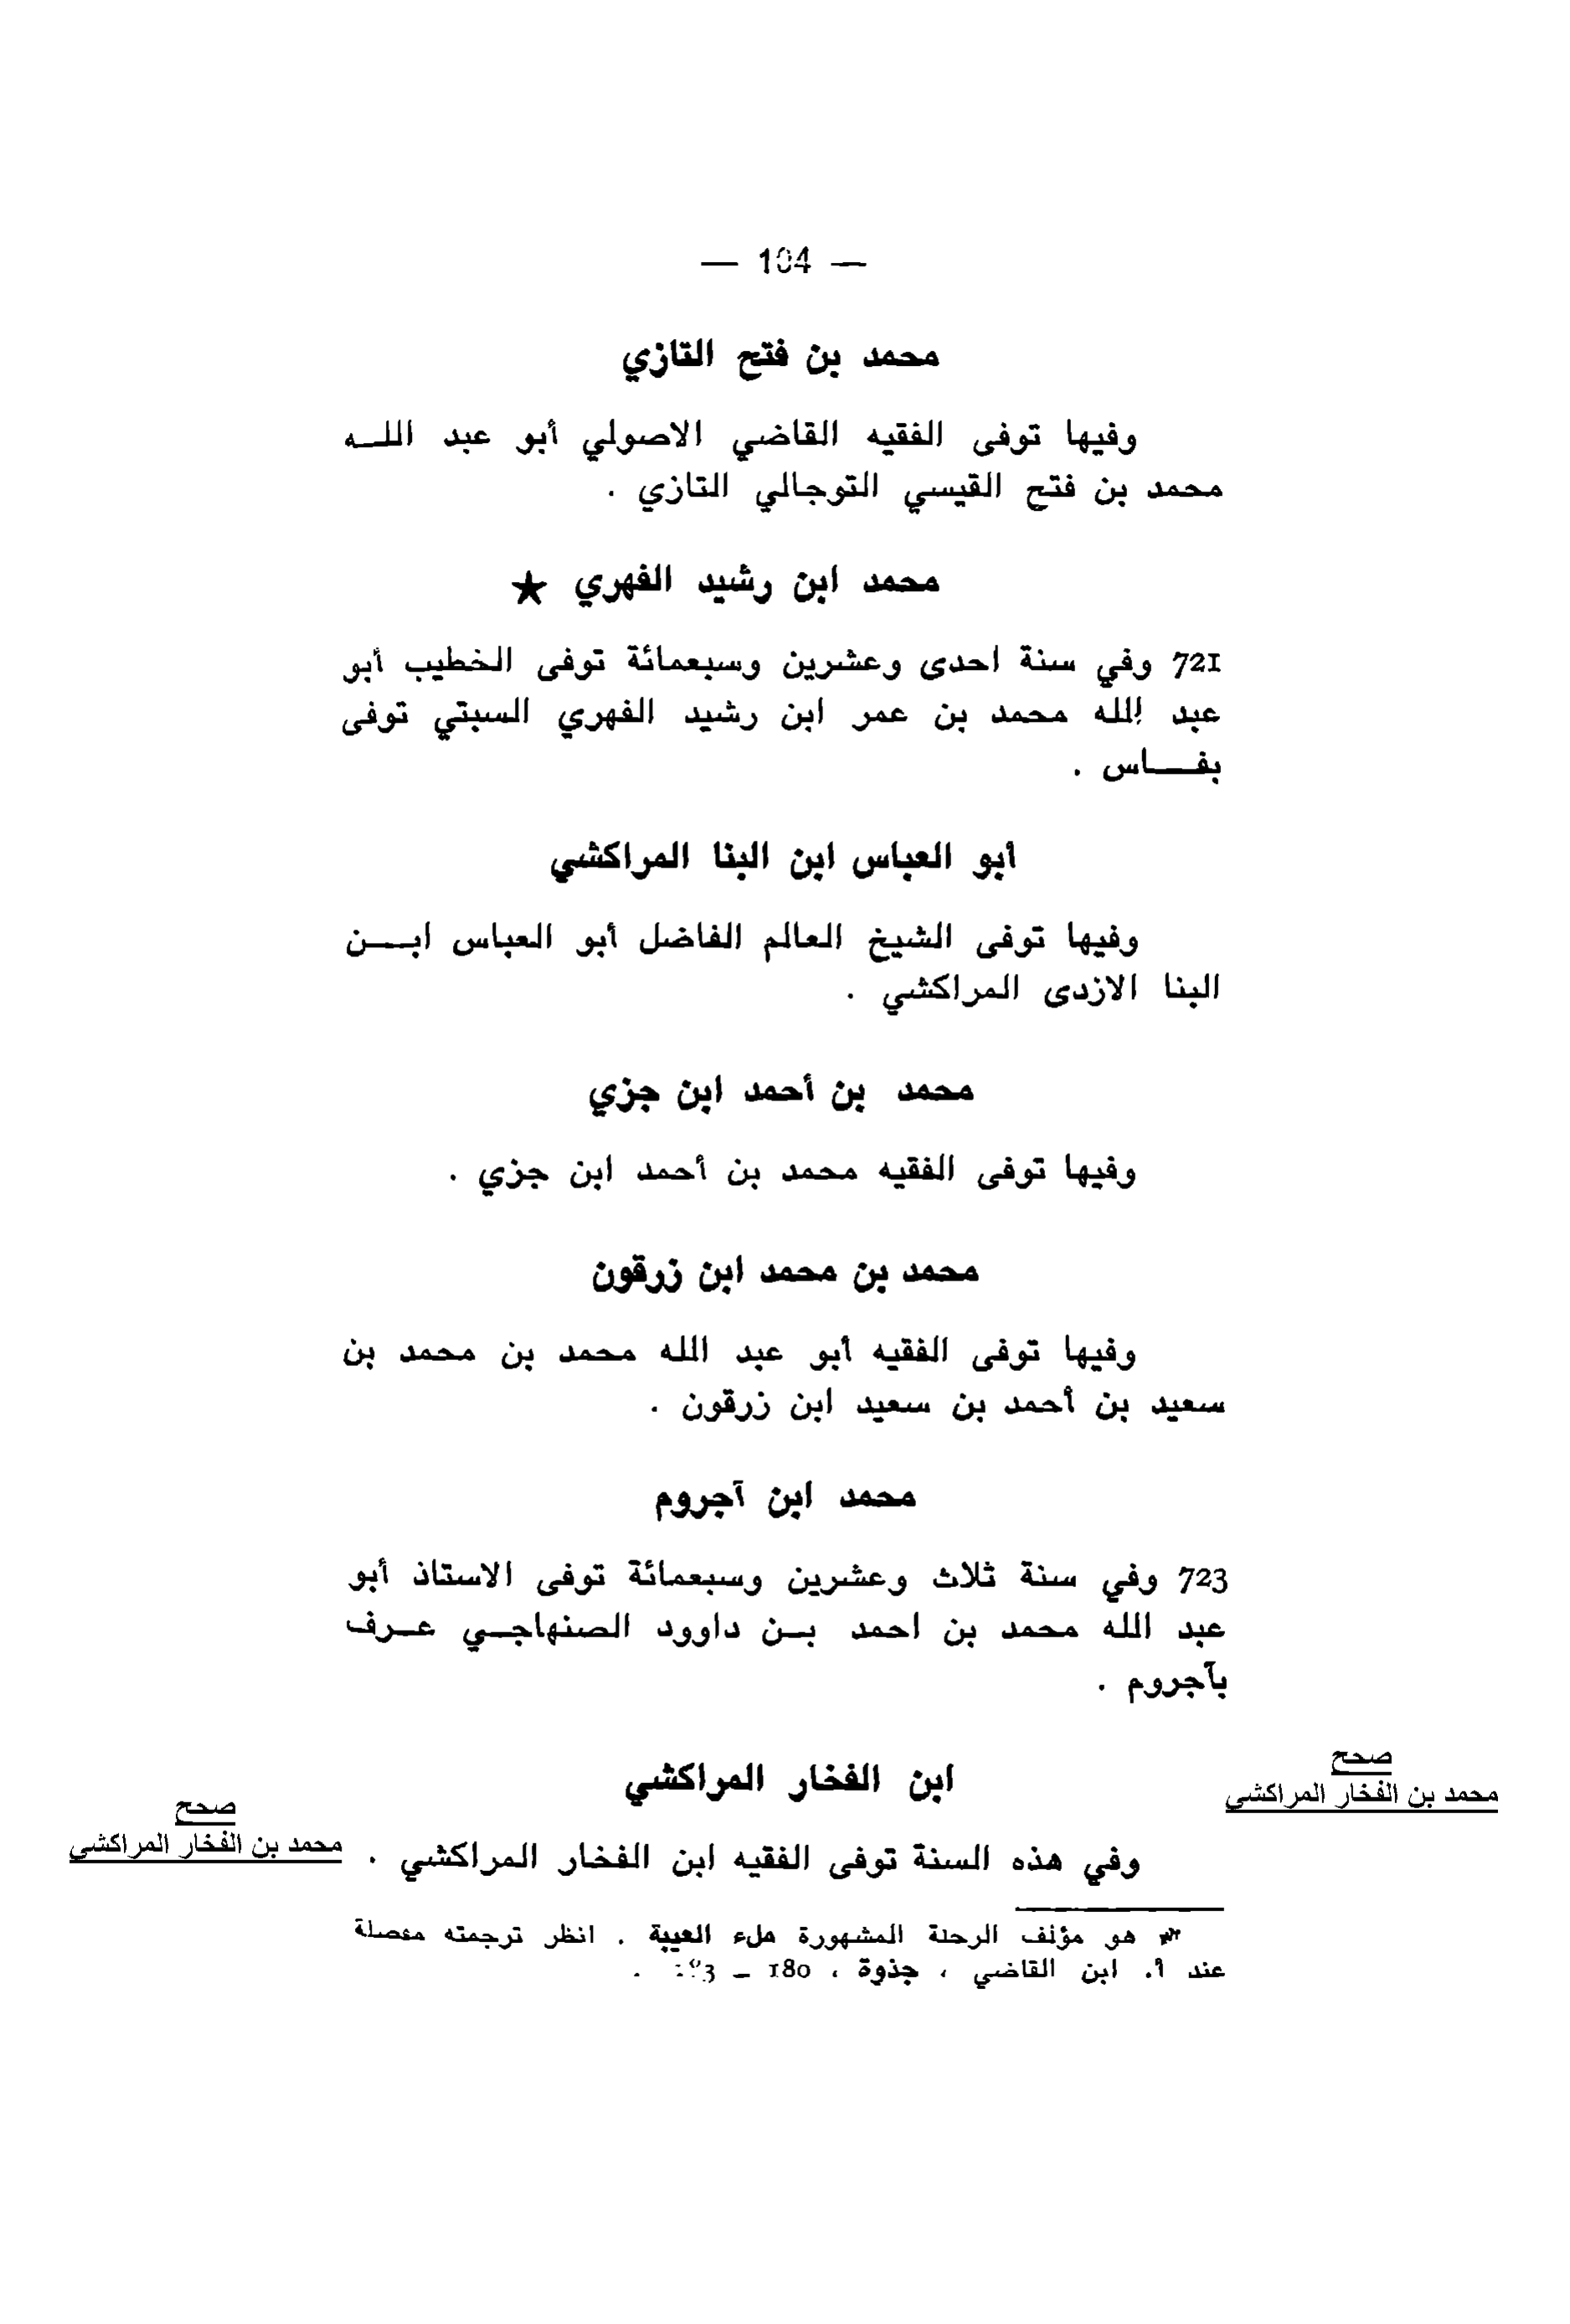 — 104 —
محمد بن فتح التازي
وفيها توفى الفقيه القاضي الاصولي أبو عبد اللـه
محمد بن فتح القيسي التوجالي التازي .
محمد ابن رشيد الفهري ★
721 وفي سنة احدى وعشرين وسبعمائة توفى الخطيب أبو
عبد الله محمد بن عمر ابن رشيد الفهري السبتي توفى
بفـــاس .
أبو العباس ابن البنا المراكشي
وفيها توفى الشيخ العالم الفاضل أبو العباس ابـــن
البنا الازدى المراكشي .
محمد بن أحمد ابن جزي
وفيها توفى الفقيه محمد بن أحمد ابن جزي .
محمد بن محمد ابن زرقون
وفيها توفى الفقيه أبو عبد الله محمد بن محمد بن
سعيد بن أحمد بن سعيد ابن زرقون .
محمد ابن آجروم
723 وفي سنة ثلاث وعشرين وسبعمائة توفى الاستاذ أبو
عبد الله محمد بن احمد بـن داوود الصنهاجـي عـرف
بآجروم .
صحح
محمد بن الفخار المراكشي
ابن الفخار المراكشي
صحح
محمد بن الفخار المراكشي
وفي هذه السنة توفى الفقيه ابن الفخار المراكشي .
★ هو مؤلف الرحلة المشهورة ملء العيبة . انظر ترجمته مفصلة
عند أ. ابن القاضي ، جذوة ، 180 – .